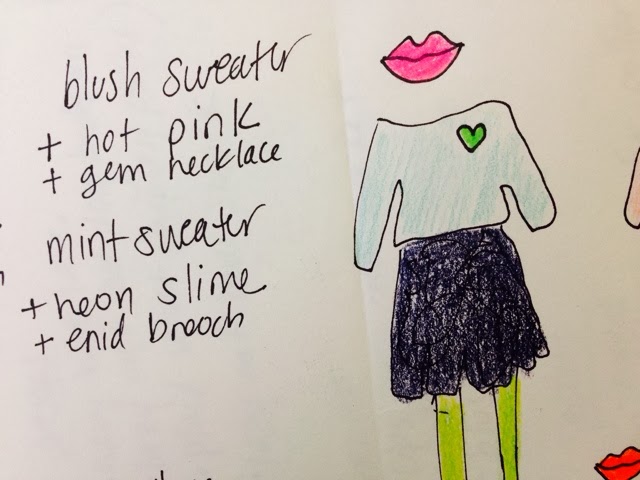 blush sweater
+ hot pink
+ gem necklace
mint sweater
+ neon slime
+ enid brooch